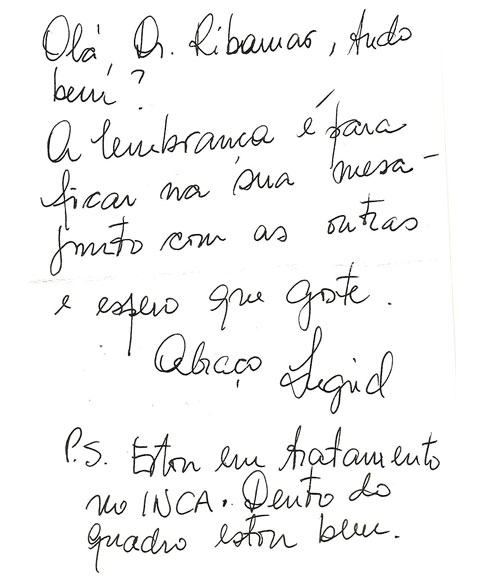 Olá, Dr. Ribamar, tudo
bem?
A lembrança é para
ficar na sua mesa -
junto com as outras
e espero que goste.
Abraço Sigrid
P.S. Estou em tratamento
no INCA. Dentro do
quadro estou bem.